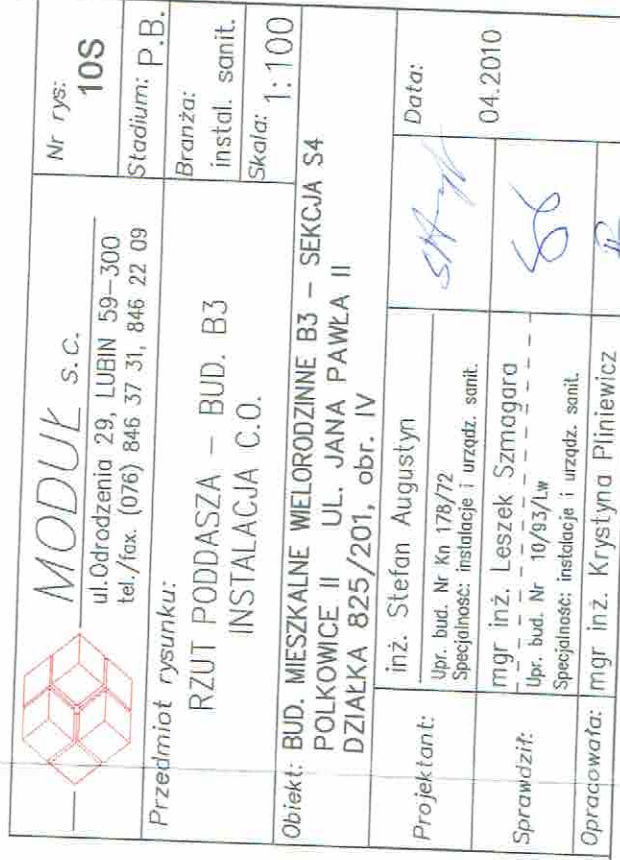 MODUŁ s.c.
ul.Odrodzenia 29, LUBIN 59-300
tel./fax. (076) 846 37 31, 846 22 09
Nr rys:
10S
Stadium: P.B.
Przedmiot rysunku:
RZUT PODDASZA – BUD. B3
INSTALACJA C.O.
Branża:
instal. sanit.
Skala: 1:100
Obiekt: BUD. MIESZKALNE WIELORODZINNE B3 – SEKCJA S4
POLKOWICE II UL. JANA PAWŁA II
DZIAŁKA 825/201, obr. IV
Projektant:
inż. Stefan Augustyn
Upr. bud. Nr Kn 178/72
Specjalność: instalacje i urządz. sanit.
Data:
04.2010
Sprawdził:
mgr inż. Leszek Szmagara
Upr. bud. Nr 10/93/Lw
Specjalność: instalacje i urządz. sanit.
Opracowała: mgr inż. Krystyna Pliniewicz